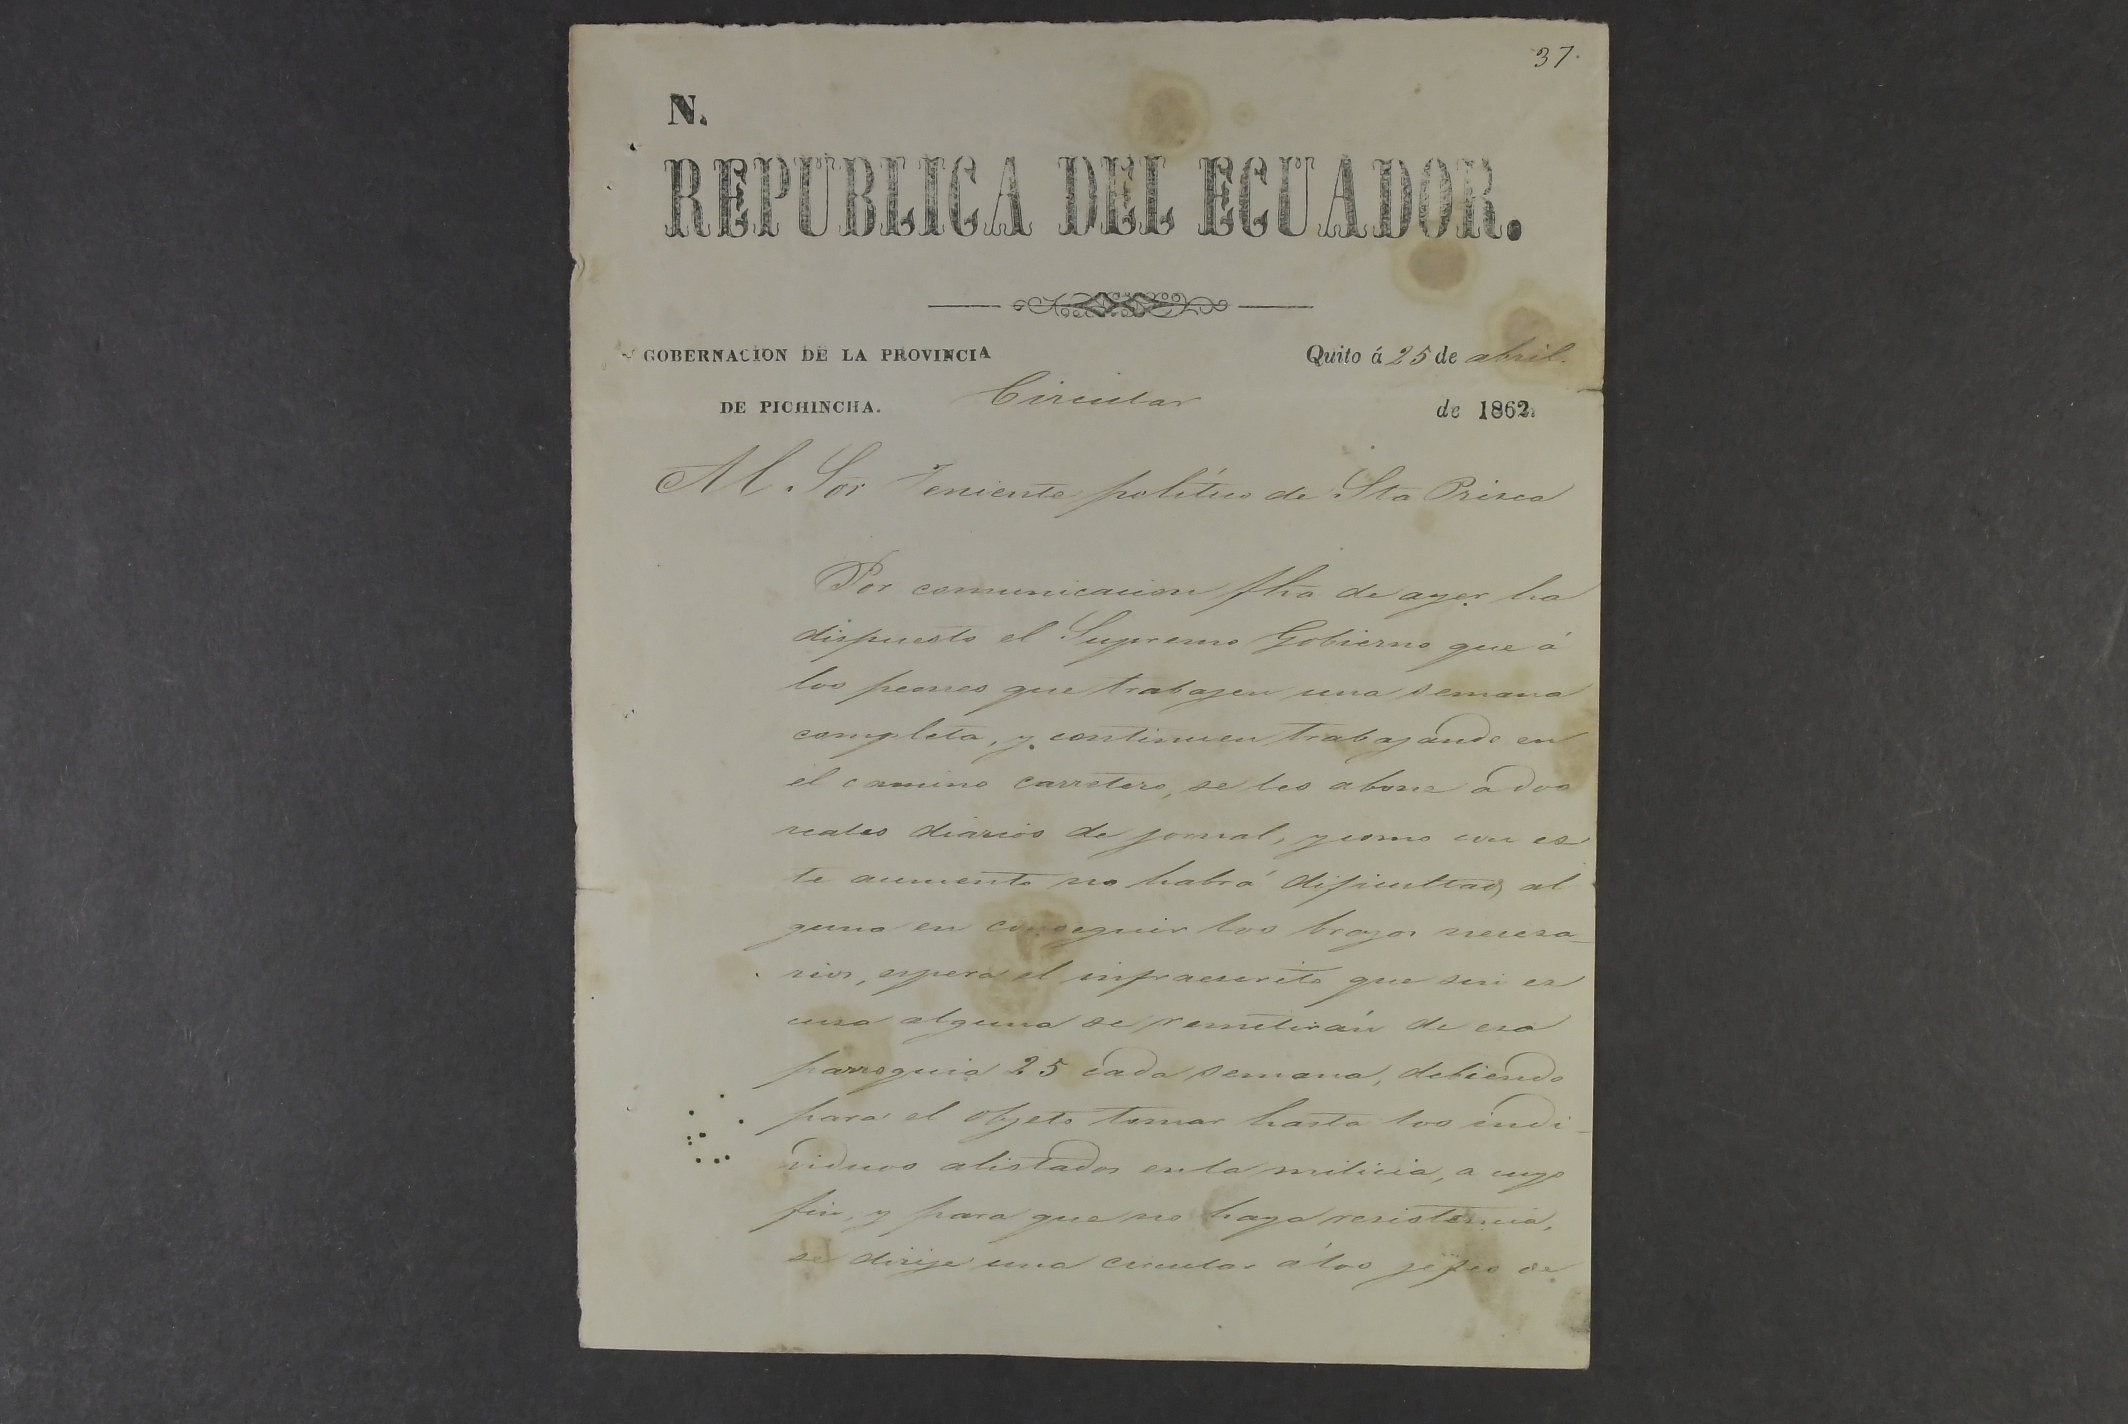 37.
N.
REPUBLICA DEL ECUADOR.
GOBERNACION DE LA PROVINCIA
DE PICHINCHA.
Quito á 25 de abril
de 1862.
Circular
Al Sor Teniente politico de Sta Prisca
Por comunicacion fha de ayer ha
dispuesto el Supremo Gobierno que á
los peones que trabajen una semana
completa, y continuen trabajando en
el camino carretero, se les abone a dos
reales diarios de jornal, y como con es
te aumento no habrá dificultad al
guna en conseguir los brazos necesa-
rios, espera el infraescrito que sin es
cusa alguna se remitirán de esa
parroquia 25 cada semana, debiendo
para el objeto tomar hasta los indi-
viduos alistados en la milicia, a cuyo
fin, y para que no haya resistencia,
se dirije una circular á los jefes de